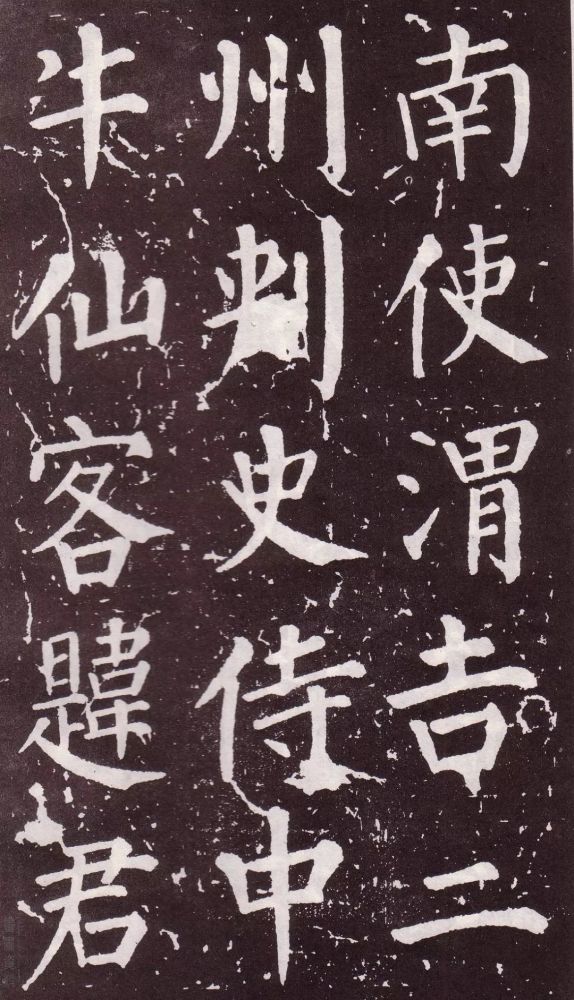 南使渭吉二
州刺史侍中
牛仙客韙君